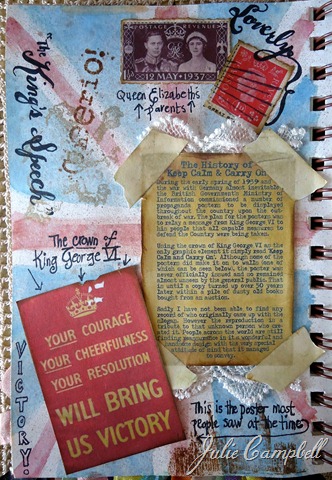 Loverly
Cheerio!
"The King's Speech"
POSTAGE REVENUE
12 MAY • 1937
Queen Elizabeth's
↑ parents ↑
The History of
Keep Calm & Carry On
During the early spring of 1939 and
the war with Germany almost inevitable,
the British Government's Ministry of
Information commissioned a number of
propaganda posters to be displayed
throughout the country upon the
The plan for the posters was
to relay a message from King George VI to
his people that all capable measures to
defend the Country were being taken.
Using the crown of King George VI as the
only graphic element it simply read 'Keep
Calm and Carry On'. Although some of the
posters did make it on to walls, one of
which can be seen below, the poster was
never officially issued and so remained
almost unseen by the general public. That
is until a copy turned up over 50 years
later within a pile of dusty old books
bought from an auction.
Sadly I have not been able to find any
record of who originally came up with the
However the reproduction is a
tribute to that unknown person who
People across the world are still
finding reassurance in its wonderful and
design with the very special
attitude of mind that it managed
to convey.
The crown of
King George VI
YOUR COURAGE
YOUR CHEERFULNESS
YOUR RESOLUTION
WILL BRING
US VICTORY
VICTORY!
This is the poster most
people saw at the time
Julie Campbell